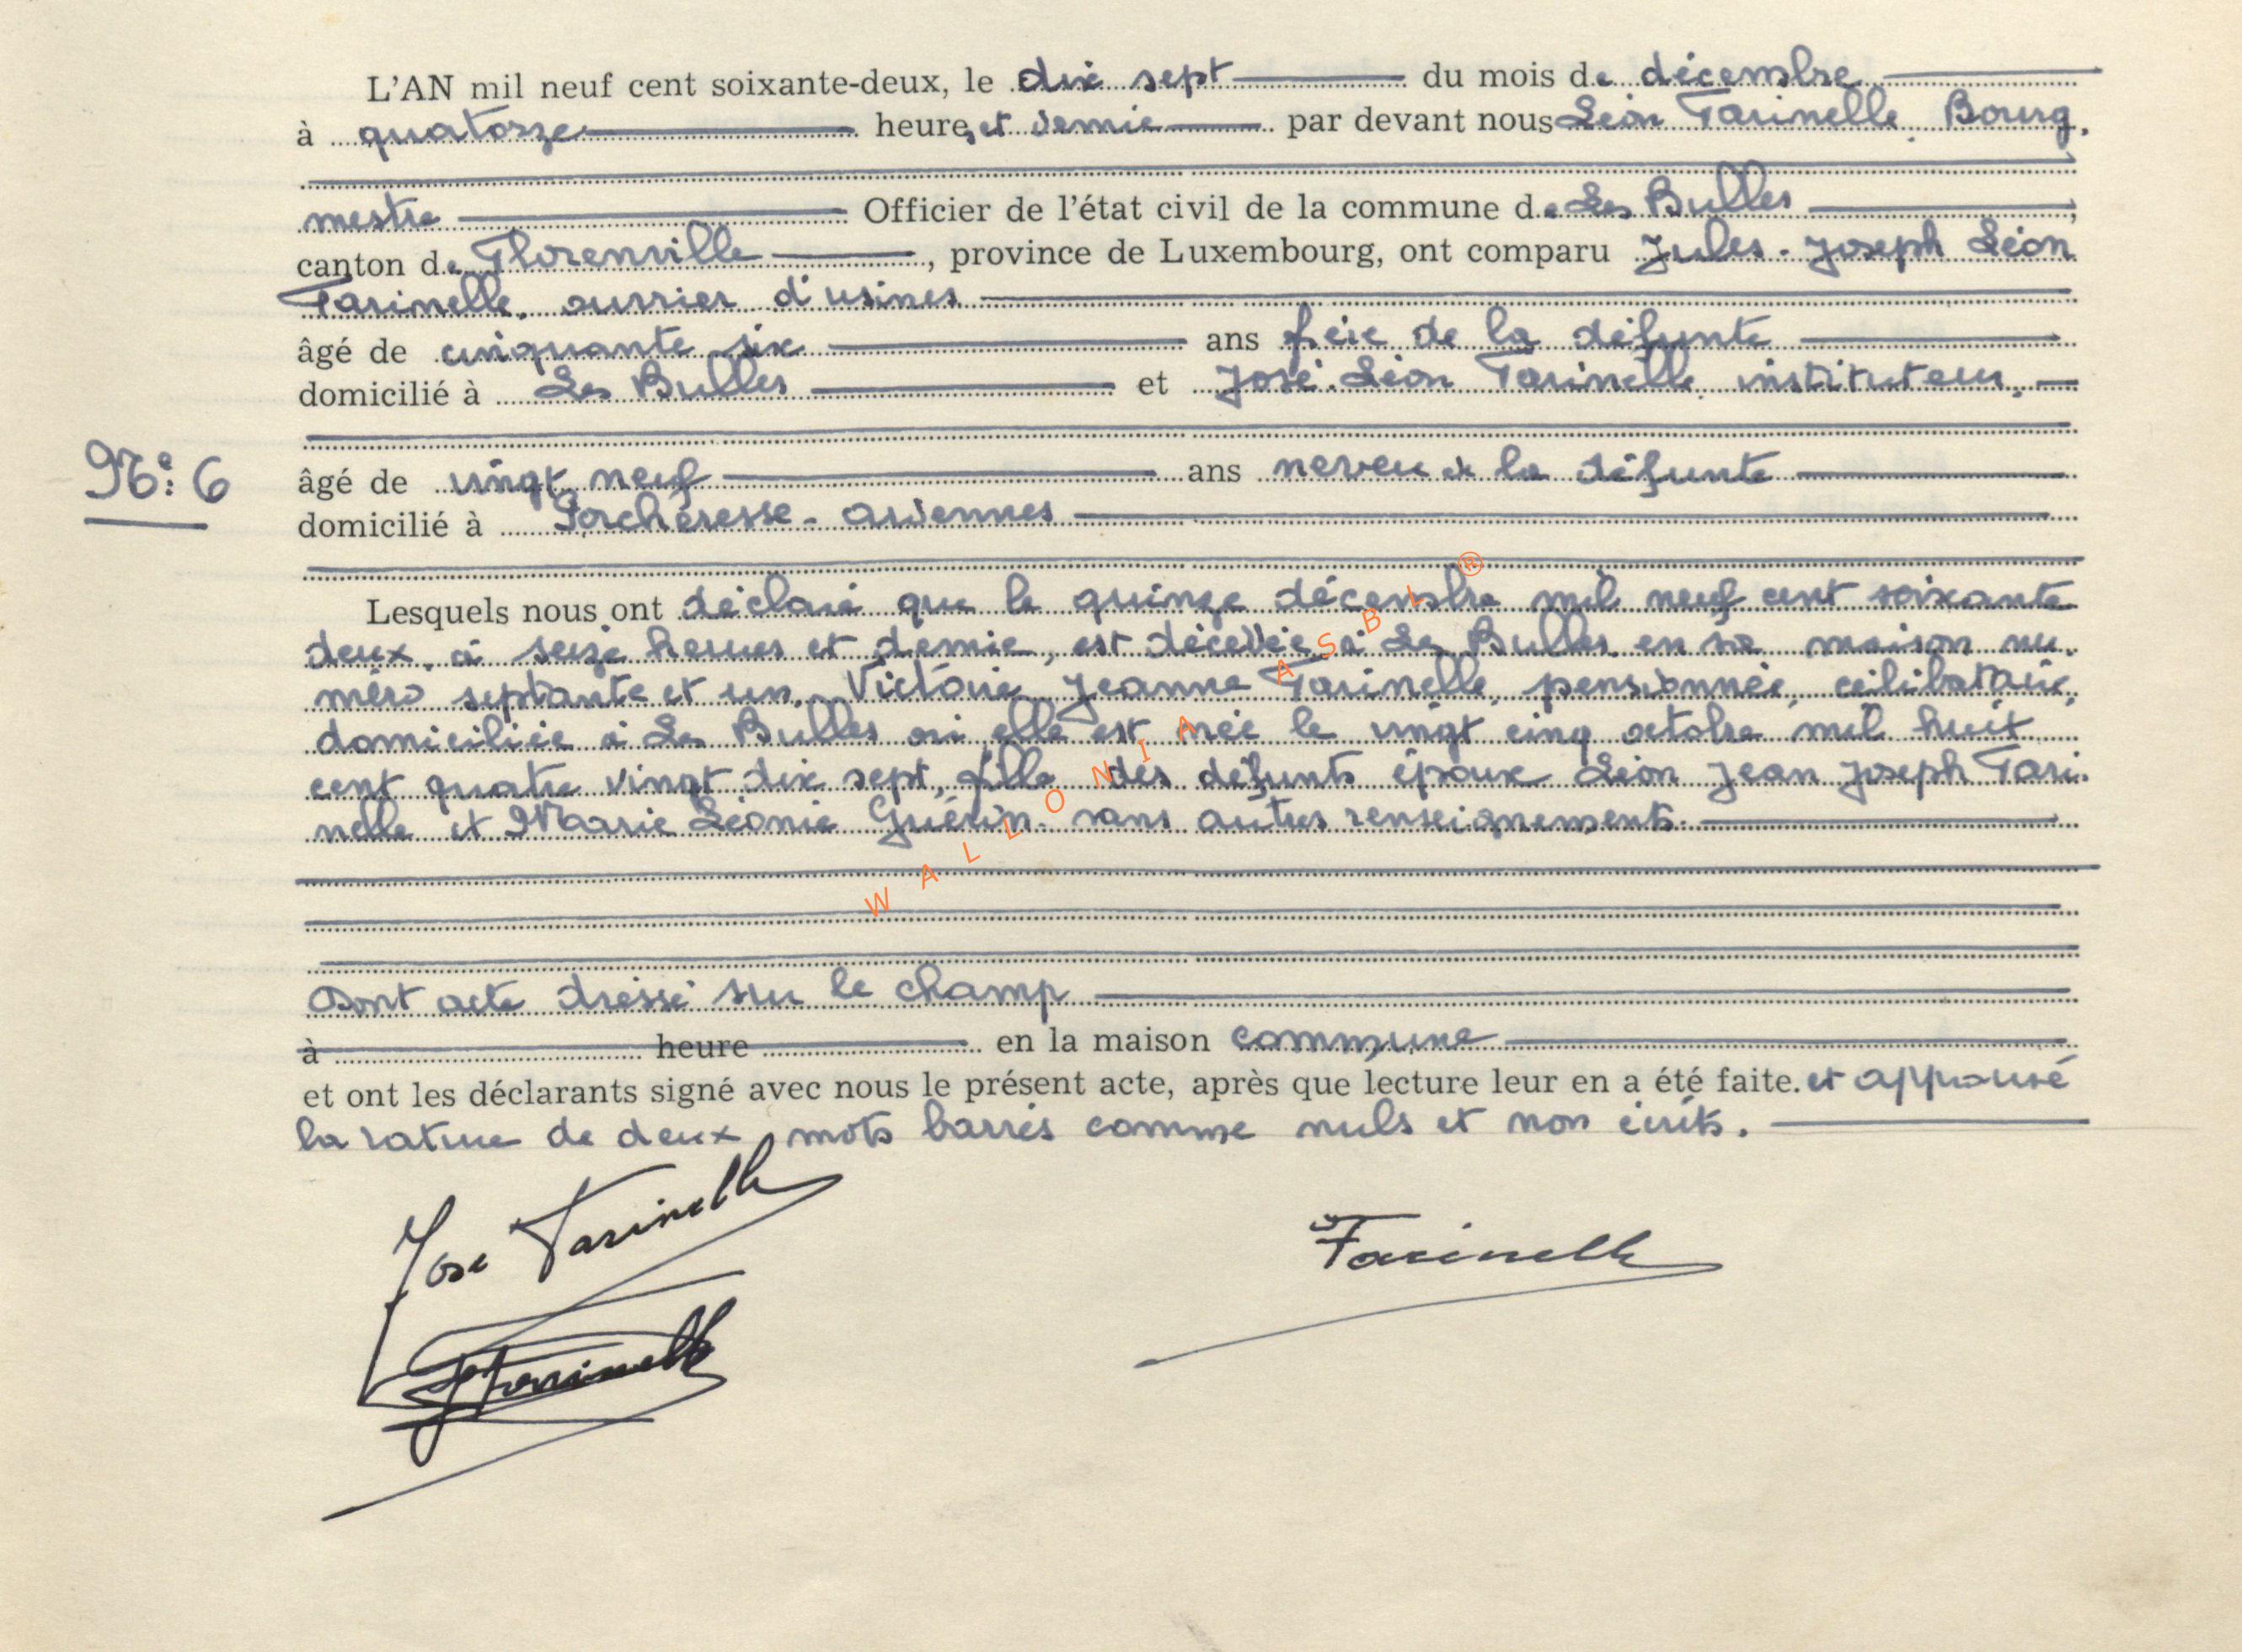 L'AN mil neuf cent soixante-deux, le dix sept du mois de décembre
à quatorze heures et demie par devant nous Léon Farinelle Bourg.
mestre Officier de l'état civil de la commune de Les Bulles,
canton de Florenville, province de Luxembourg, ont comparu Jules-Joseph Léon
Farinelle, ouvrier d'usines
âgé de cinquante six ans frère de la défunte
domicilié à Les Bulles et José-Léon Farinelle, instituteur,
N°: 6
âgé de vingt neuf ans neveu de la défunte
domicilié à Porchéresse-ardennes
Lesquels nous ont déclaré que le quinze décembre mil neuf cent soixante
deux, à seize heures et demie, est décédée à Les Bulles en sa maison nu.
méro septante et un, Victorie Jeanne Farinelle, pensionnée, célibataire,
domiciliée à Les Bulles où elle est née le vingt cinq octobre mil huit
cent quatre vingt dix sept, fille des défunts époux Léon Jean Joseph Fari.
nelle et Marie Léonie Guérin. sans autres renseignements.
WALLONIA ASBL ®
Dont acte dressé sur le champ
à heure en la maison commune
et ont les déclarants signé avec nous le présent acte, après que lecture leur en a été faite. et approuvé
la rature de deux mots barrés comme nuls et non écrits.
José Farinelle
Farinelle
JFarinelle